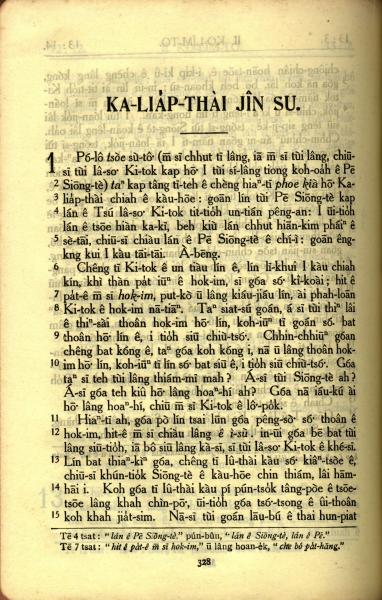 KA-LIA̍P-THÀI JÎN SU.
1 Pó-lô tsòe sù-tô͘ (m̄ sī chhut tī lâng, iā m̄ sī tùi lâng, chiū-
sī tùi Iâ-so͘ Ki-tok kap hō͘ I tùi sí-lâng tiong koh-oa̍h ê Pē
2 Siōng-tè) taⁿ kap tâng tī-teh ê chèng hiaⁿ-tī phoe kià hō͘ Ka-
3 lia̍p-thài chiah ê kàu-hōe: goān lín tùi Pē Siōng-tè kap
lán ê Tsú Iâ-so͘ Ki-tok tit-tio̍h un-tián pêng-an: I ūi-tio̍h
4 lán ê tsōe hiàn ka-kī, beh kiù lán chhut hiān-kim pháiⁿ ê
5 sè-tāi, chiū-sī chiàu lán ê Pē Siōng-tè ê chí-ì: goān êng-
kng kui I kàu tāi-tāi. Ā-bēng.
6 Chêng tī Ki-tok ê un tiàu lín ê, lín lī-khui I kàu chiah
kín, khì thàn pa̍t iūⁿ ê hok-im, sī góa só͘ kî-koài; hit ê
7 pa̍t-ê m̄ sī hok-im, put-kò ū lâng kiáu-jiáu lín, ài phah-loān
8 Ki-tok ê hok-im nā-tiāⁿ. Taⁿ siat-sú goán, á sī tùi thiⁿ lâi
ê thiⁿ-sài thoân hok-im hō͘ lín, koh-iūⁿ tī goán só͘ bat
9 thoân hō͘ lín ê, i tio̍h siū chiù-tsó͘. Chhin-chhiūⁿ góan
chêng bat kóng ê, taⁿ góa koh kóng i, nā ū lâng thoân hok-
10 im hō͘ lín, koh-iūⁿ tī lín só͘ bat siū ê, i tio̍h siū chiù-tsó͘. Góa
taⁿ sī teh tùi lâng thiám-mī mah? Á-sī tùi Siōng-tè ah?
Á-sī góa teh kiû hō͘ lâng hoaⁿ-hí ah? Góa nā iáu-kú ài
hō͘ lâng hoaⁿ-hí, chiū m̄ sī Ki-tok ê lô͘-po̍k.
11 Hiaⁿ-tī ah, góa pò lín tsai lūn góa pêng-sò͘ só͘ thoân ê
12 hok-im, hit-ê m̄ sī chiàu lâng ê ì-sù. in-ūi góa bē bat tùi
lâng siū-tio̍h, iā bô siū lâng kà-sī, sī tùi Iâ-so͘ Ki-tok ê khé-sī.
13 Lín bat thiaⁿ-kìⁿ góa, chêng tī Iû-thài kàu só͘ kiâⁿ-tsōe ê,
chiū-sī khún-tio̍k Siōng-tè ê kàu-hōe chin thiám, lâi hām-
14 hāi i. Koh góa tī Iû-thài kàu pí pún-tso̍k tâng-pòe ê tsōe-
tsōe lâng khah chìn-pō͘, ūi-tio̍h góa tsó͘-tsong ê ûi-thoân
15 koh khah jia̍t-sim. Nā-sī tùi goán lāu-bú ê thai hun-piat
Tē 4 tsat: " lán ê Pē Siōng-tè," pún-bûn, " lán ê Siōng-tè, lán ê Pē."
Tē 7 tsat: " hit ê pa̍t-ê m̄ sī hok-im," ū lâng hoan-e̍k, " che bô pa̍t-hāng."
328